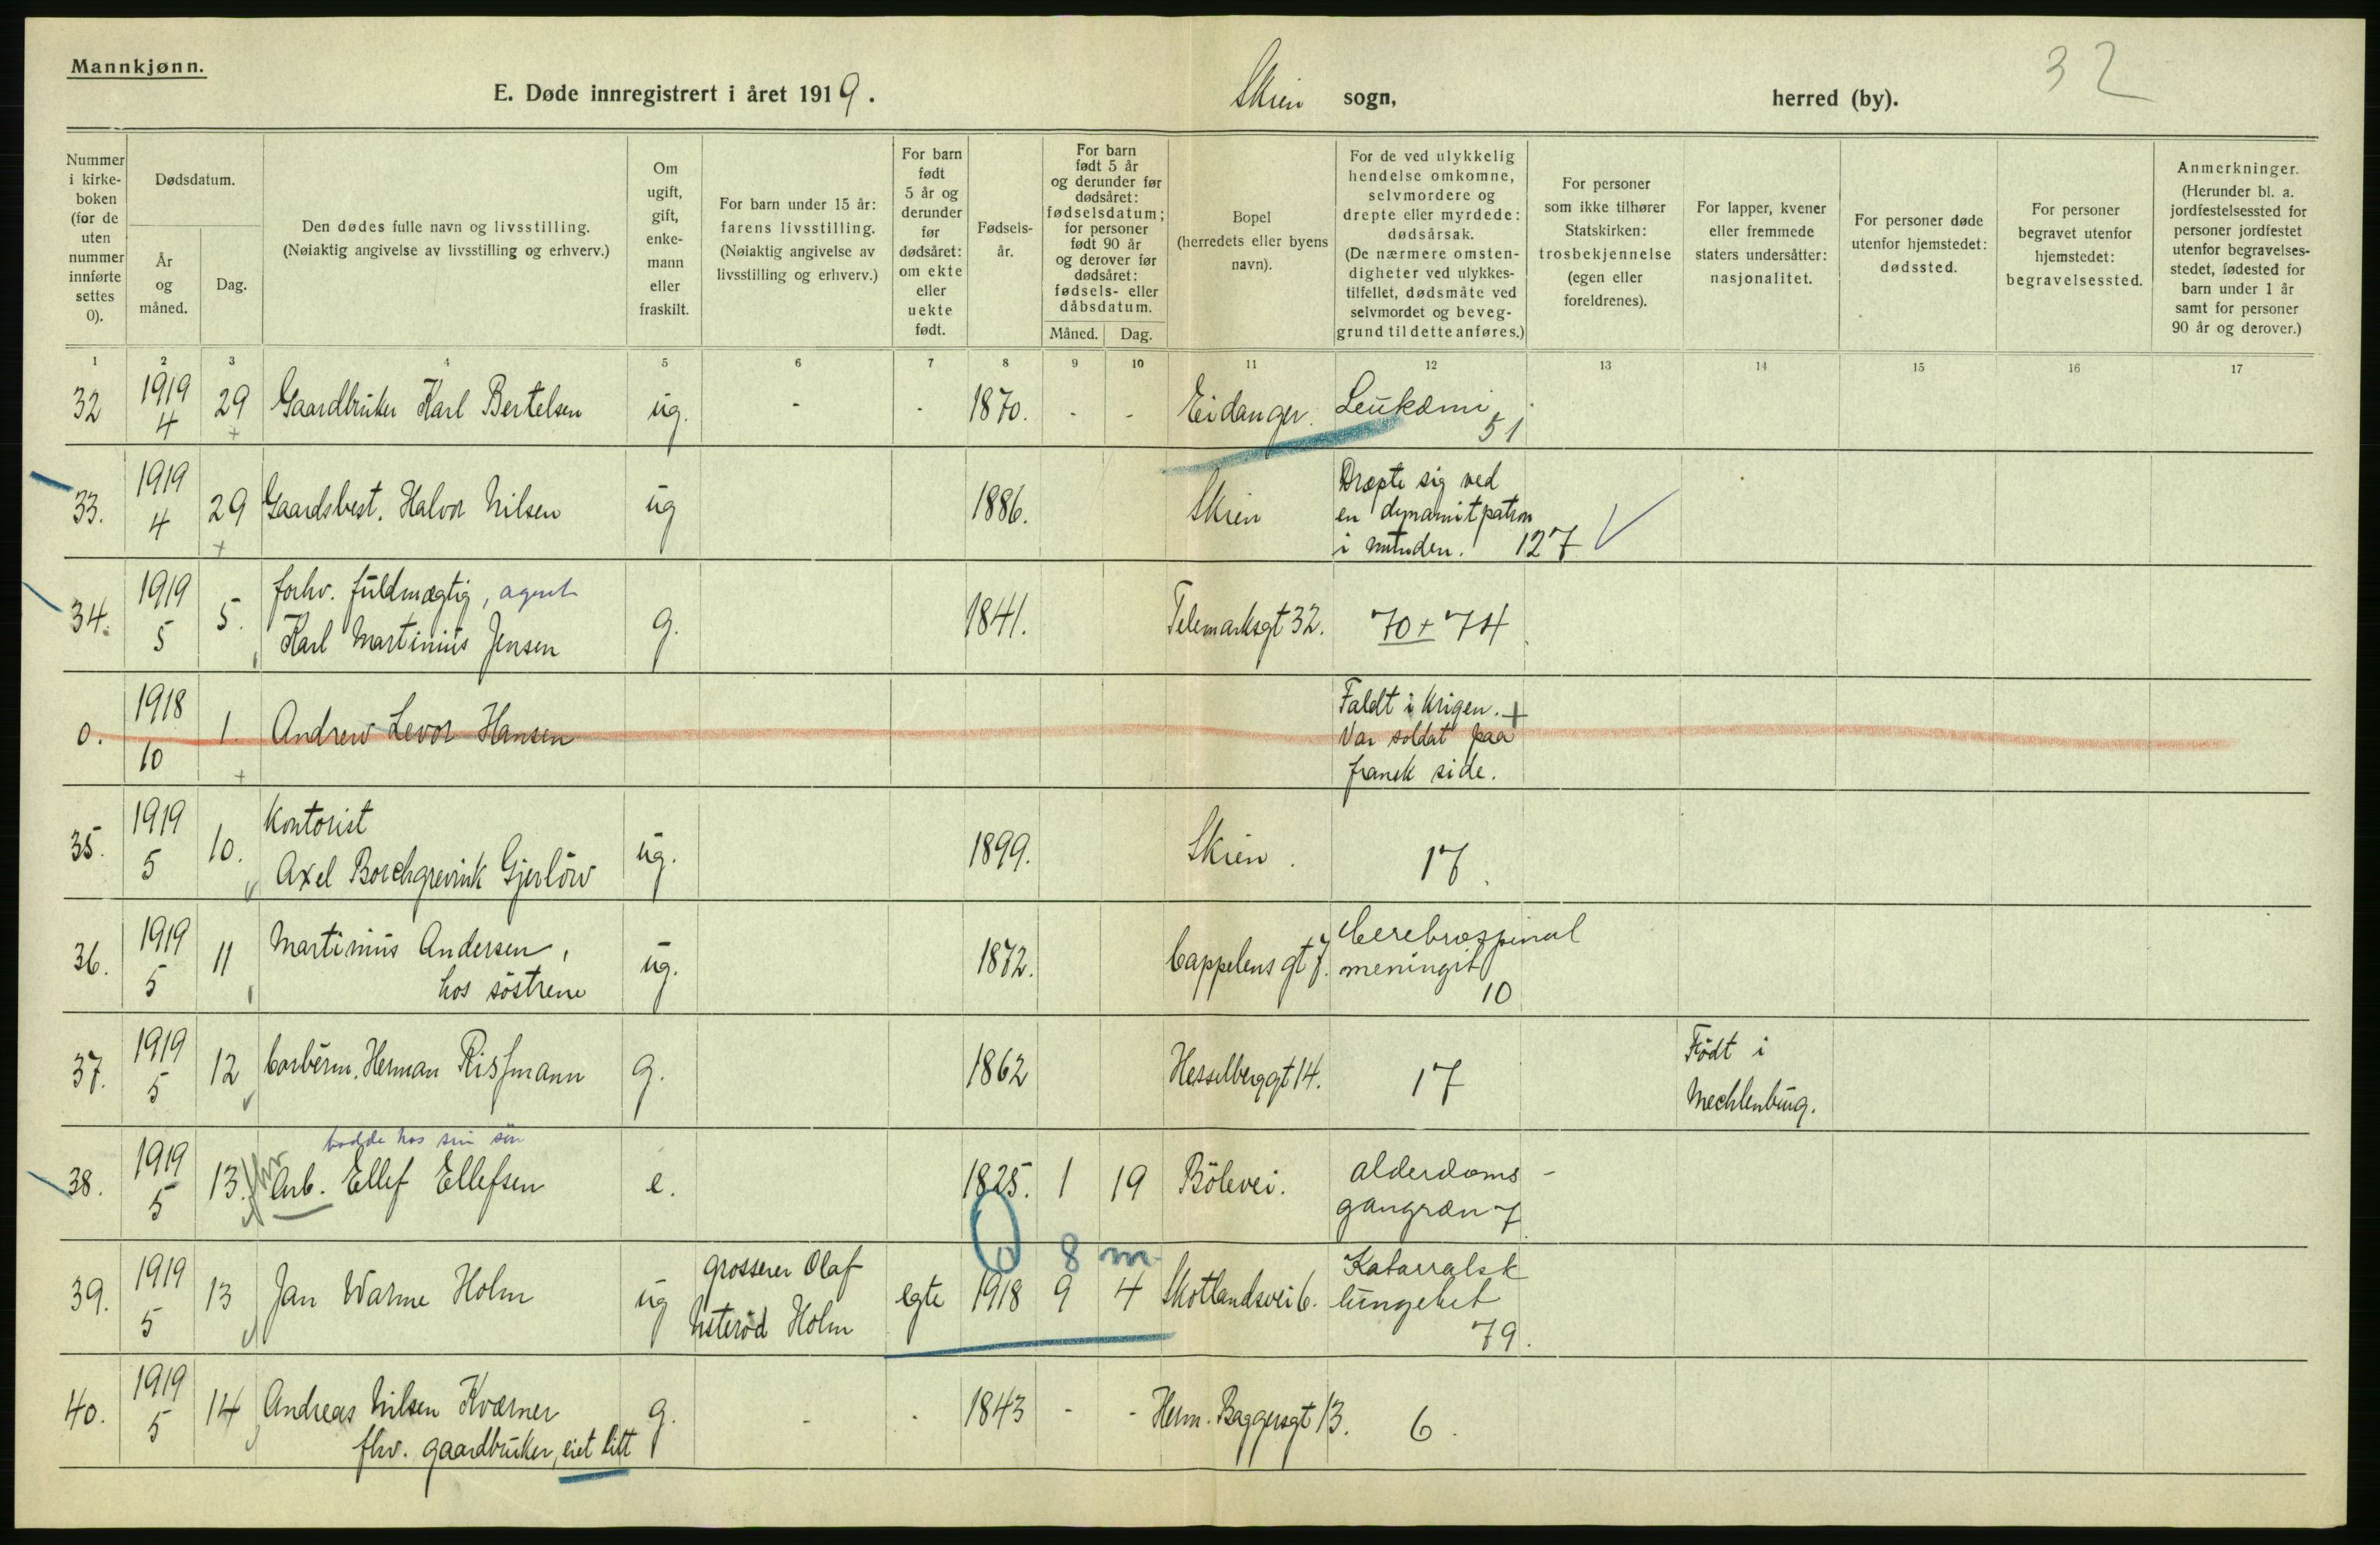 Mannkjønn.
32
E. Døde innregistrert i året 1919. Skien sogn, herred (by).
Nummer i kirke-boken (for de uten nummer innførte settes 0).
Dødsdatum.
År og måned.
Dag.
Den dødes fulle navn og livsstilling.
(Nøiaktig angivelse av livsstilling og erhverv.)
Om ugift, gift, enke-mann eller fraskilt.
For barn under 15 år: farens livsstilling.
(Nøiaktig angivelse av livsstilling og erhverv.)
For barn født 5 år og derunder før dødsåret: om ekte eller uekte født.
Fødsels-år.
For barn født 5 år og derunder før dødsåret: fødselsdatum; for personer født 90 år og derover før dødsåret: fødsels- eller dåbsdatum.
Måned. Dag.
Bopel (herredets eller byens navn).
For de ved ulykkelig hendelse omkomne, selvmordere og drepte eller myrdede: dødsårsak.
(De nærmere omsten-digheter ved ulykkes-tilfellet, dødsmåte ved selvmordet og beveg-grund til dette anføres.)
For personer som ikke tilhører Statskirken: trosbekjennelse (egen eller foreldrenes).
For lapper, kvener eller fremmede staters undersåtter: nasjonalitet.
For personer døde utenfor hjemstedet: dødssted.
For personer begravet utenfor hjemstedet: begravelsessted.
Anmerkninger.
(Herunder bl. a. jordfestelsessted for personer jordfestet utenfor begravelses-stedet, fødested for barn under 1 år samt for personer 90 år og derover.)
1 2 3 4 5 6 7 8 9 10 11 12 13 14 15 16 17
32 1919 4 29 + Gaardbruker Karl Bertelsen ug. - - 1870. - - Eidanger. Leukæmi. 51
33. 1919 4 29 + Gaardsbest. Halvor Nilsen ug 1886. Skien Dræpte sig ved
en dynamitpatron
i munden. 127
34. 1919 5 5. forhv. fuldmægtig, agent
Karl Martinius Jensen g. 1841. Telemarksgt 32. 70 + 74
0. 1918 10 1. + Andrew Levor Hansen Faldt i krigen. +
Var soldat paa
fransk side.
35. 1919 5 10. Kontorist
Axel Borchgrevink Gjerlöw ug. 1899. Skien. 17.
36. 1919 5 11 Martinius Andersen,
hos söstrene ug. 1872. Cappelens gt 7. Cerebrospinal
meningit 10
37. 1919 5 12 Barberm. Herman Rissmann g. 1862 Hesselberggt 14. 17 Födt i
Mechlenburg.
bodde hos sin sön
38. 1919 5 13. fhv Arb. Ellef Ellefsen e. 1825. 1 19 Bölevei. alderdoms-
gangræn 7
0 8 m.
39. 1919 5 13 Jan Warme Holm ug grosserer Olaf
Holm egte 1918 9 4 Skotlandsvei 6. Katarralsk
lungebet 79.
40. 1919 5 14 Andreas Nilsen Kværner
fhv. gaardbruker, eiet litt g. - - 1843 - - Herm. Baggersgt 13. 6.